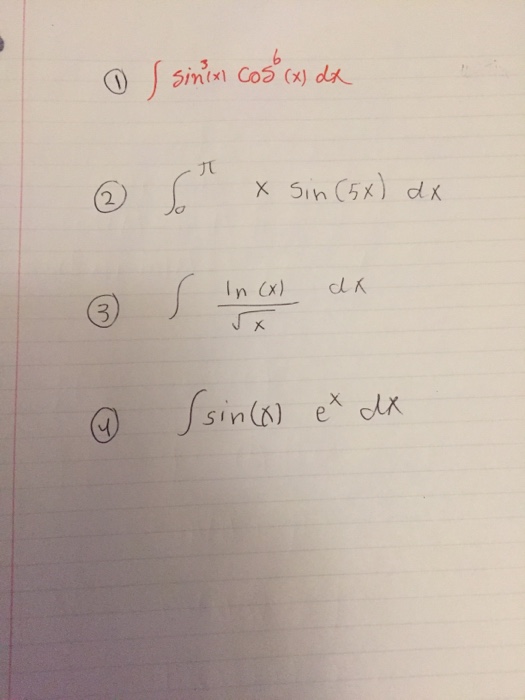 ① ∫ sin³(x) cos⁶(x) dx
② ∫₀^π x sin(5x) dx
③ ∫ ln(x)/√x dx
④ ∫ sin(x) eˣ dx